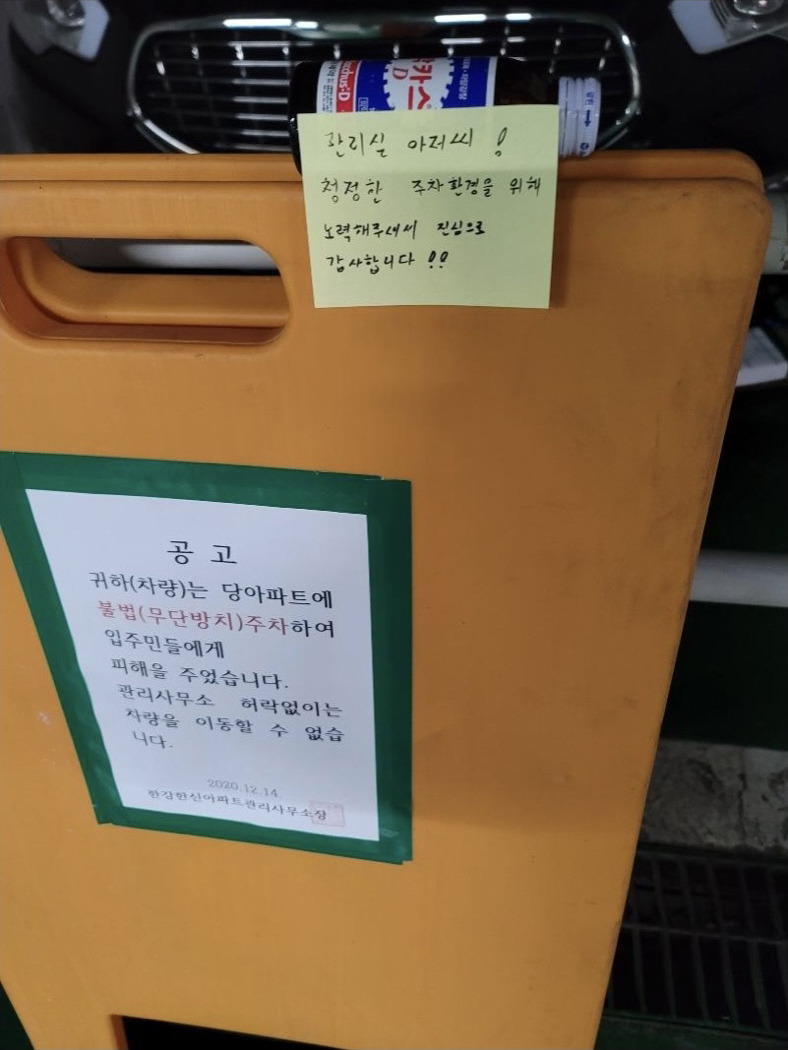 카스
D
cchus-D
관리실 아저씨 !
청정한 주차환경을 위해
노력해주셔서 진심으로
감사합니다 !!
공 고
귀하(차량)는 당아파트에
불법(무단방치)주차하여
입주민들에게
피해를 주었습니다.
관리사무소 허락없이는
차량을 이동할 수 없습
니다.
2020.12.14.
한강한신아파트관리사무소장